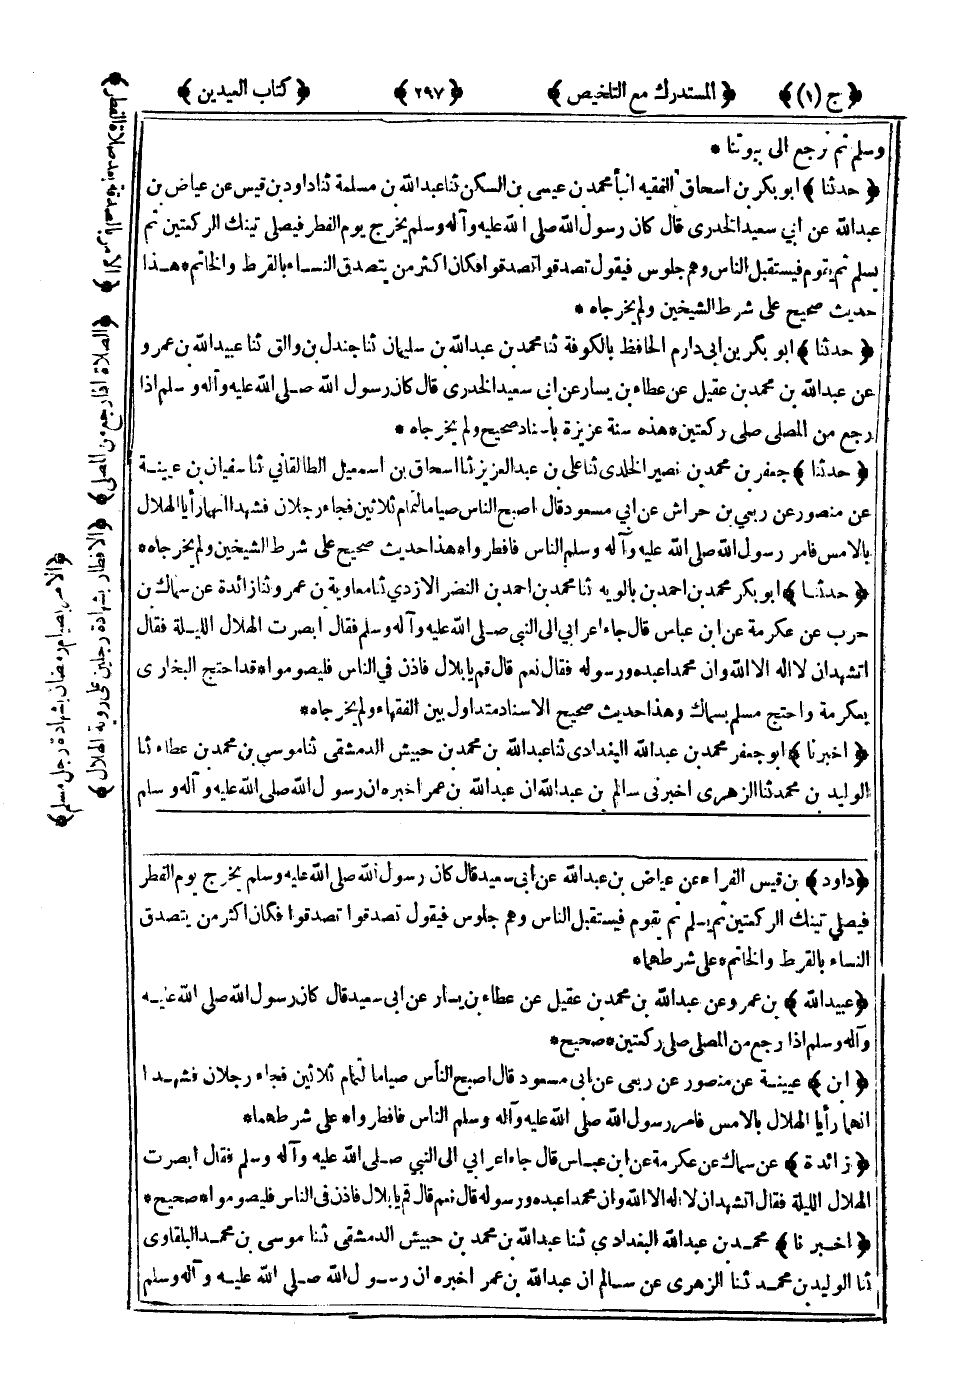 ﴿ ج (١) ﴾ ﴿ المستدرك مع التلخيص ﴾ ﴿ ٢٩٧ ﴾ ﴿ كتاب العيدين ﴾
وسلم ثم نرجع الى بيوتنا *
﴿ حدثنا ﴾ ابو بكر بن اسحاق الفقيه انبأ محمد بن عيسى بن السكن ثنا عبد الله بن مسلمة ثنا داود بن قيس عن عياض بن
عبد الله عن ابي سعيد الخدرى قال كان رسول الله صلى الله عليه وآله وسلم يخرج يوم الفطر فيصلي تينك الركعتين ثم
يسلم ثم يقوم فيستقبل الناس وهم جلوس فيقول تصدقوا تصدقوا فكان اكثر من يتصدق النساء بالقرط والخاتم * هذا
حديث صحيح على شرط الشيخين ولم يخرجاه *
﴿ حدثنا ﴾ ابو بكر بن ابى دارم الحافظ بالكوفة ثنا محمد بن عبد الله بن سليمان ثنا جندل بن والق ثنا عبيد الله بن عمرو
عن عبد الله بن محمد بن عقيل عن عطاء بن يسار عن ابى سعيد الخدرى قال كان رسول الله صلى الله عليه وآله وسلم اذا
رجع من المصلى صلى ركعتين * هذه سنة عزيزة باسناد صحيح ولم يخرجاه *
﴿ حدثنا ﴾ جعفر بن محمد بن نصير الخلدى ثنا على بن عبد العزيز ثنا اسحاق بن اسمعيل الطالقاني ثنا سفيان بن عيينة
عن منصور عن ربعي بن حراش عن ابي مسعود قال اصبح الناس صياما لتمام ثلاثين فجاء رجلان فشهدا انهما رأيا الهلال
بالامس فامر رسول الله صلى الله عليه وآله وسلم الناس فافطروا * هذا حديث صحيح على شرط الشيخين ولم يخرجاه *
﴿ حدثنا ﴾ ابو بكر محمد بن احمد بن بالويه ثنا محمد بن احمد بن النضر الازدي ثنا معاوية بن عمرو ثنا زائدة عن سماك بن
حرب عن عكرمة عن ابن عباس قال جاء اعرابي الى النبي صلى الله عليه وآله وسلم فقال ابصرت الهلال الليلة فقال
اتشهد ان لا اله الا الله وان محمدا عبده ورسوله فقال نعم قال قم يا بلال فاذن في الناس فليصوموا * قد احتج البخارى
بعكرمة واحتج مسلم بسماك وهذا حديث صحيح الاسناد متداول بين الفقهاء ولم يخرجاه *
﴿ اخبرنا ﴾ ابو جعفر محمد بن عبد الله البغدادى ثنا عبد الله بن محمد بن حبيش الدمشقى ثنا موسى بن محمد بن عطاء ثنا
الوليد بن محمد ثنا الزهرى اخبرنى سالم بن عبد الله ان عبد الله بن عمر اخبره ان رسول الله صلى الله عليه وآله وسلم
﴿ داود ﴾ بن قيس الفراء عن عياض بن عبد الله عن ابى سعيد قال كان رسول الله صلى الله عليه وسلم يخرج يوم الفطر
فيصلي تينك الركعتين ثم يسلم ثم يقوم فيستقبل الناس وهم جلوس فيقول تصدقوا تصدقوا فكان اكثر من يتصدق
النساء بالقرط والخاتم * على شرطهما *
﴿ عبيد الله ﴾ بن عمرو عن عبد الله بن محمد بن عقيل عن عطاء بن يسار عن ابى سعيد قال كان رسول الله صلى الله عليه
وآله وسلم اذا رجع من المصلى صلى ركعتين * صحيح *
﴿ ابن ﴾ عيينة عن منصور عن ربعى عن ابى مسعود قال اصبح الناس صياما لتمام ثلاثين فجاء رجلان فشهدا
انهما رأيا الهلال بالامس فامر رسول الله صلى الله عليه وآله وسلم الناس فافطروا * على شرطهما *
﴿ زائدة ﴾ عن سماك عن عكرمة عن ابن عباس قال جاء اعرابي الى النبي صلى الله عليه وآله وسلم فقال ابصرت
الهلال الليلة فقال اتشهد ان لا اله الا الله وان محمدا عبده ورسوله قال نعم قال قم يا بلال فاذن فى الناس فليصوموا * صحيح *
﴿ اخبرنا ﴾ محمد بن عبد الله البغدادي ثنا عبد الله بن محمد بن حبيش الدمشقى ثنا موسى بن محمد البلقاوى
ثنا الوليد بن محمد ثنا الزهرى عن سالم ان عبد الله بن عمر اخبره ان رسول الله صلى الله عليه وآله وسلم
﴿ الامر بالصدقة بعد صلاة الفطر ﴾
﴿ الصلاة اذا رجع من المصلى ﴾
﴿ الافطار بشهادة رجلين على روية الهلال ﴾
﴿ الامر بصيام رمضان بشهادة رجل مسلم ﴾